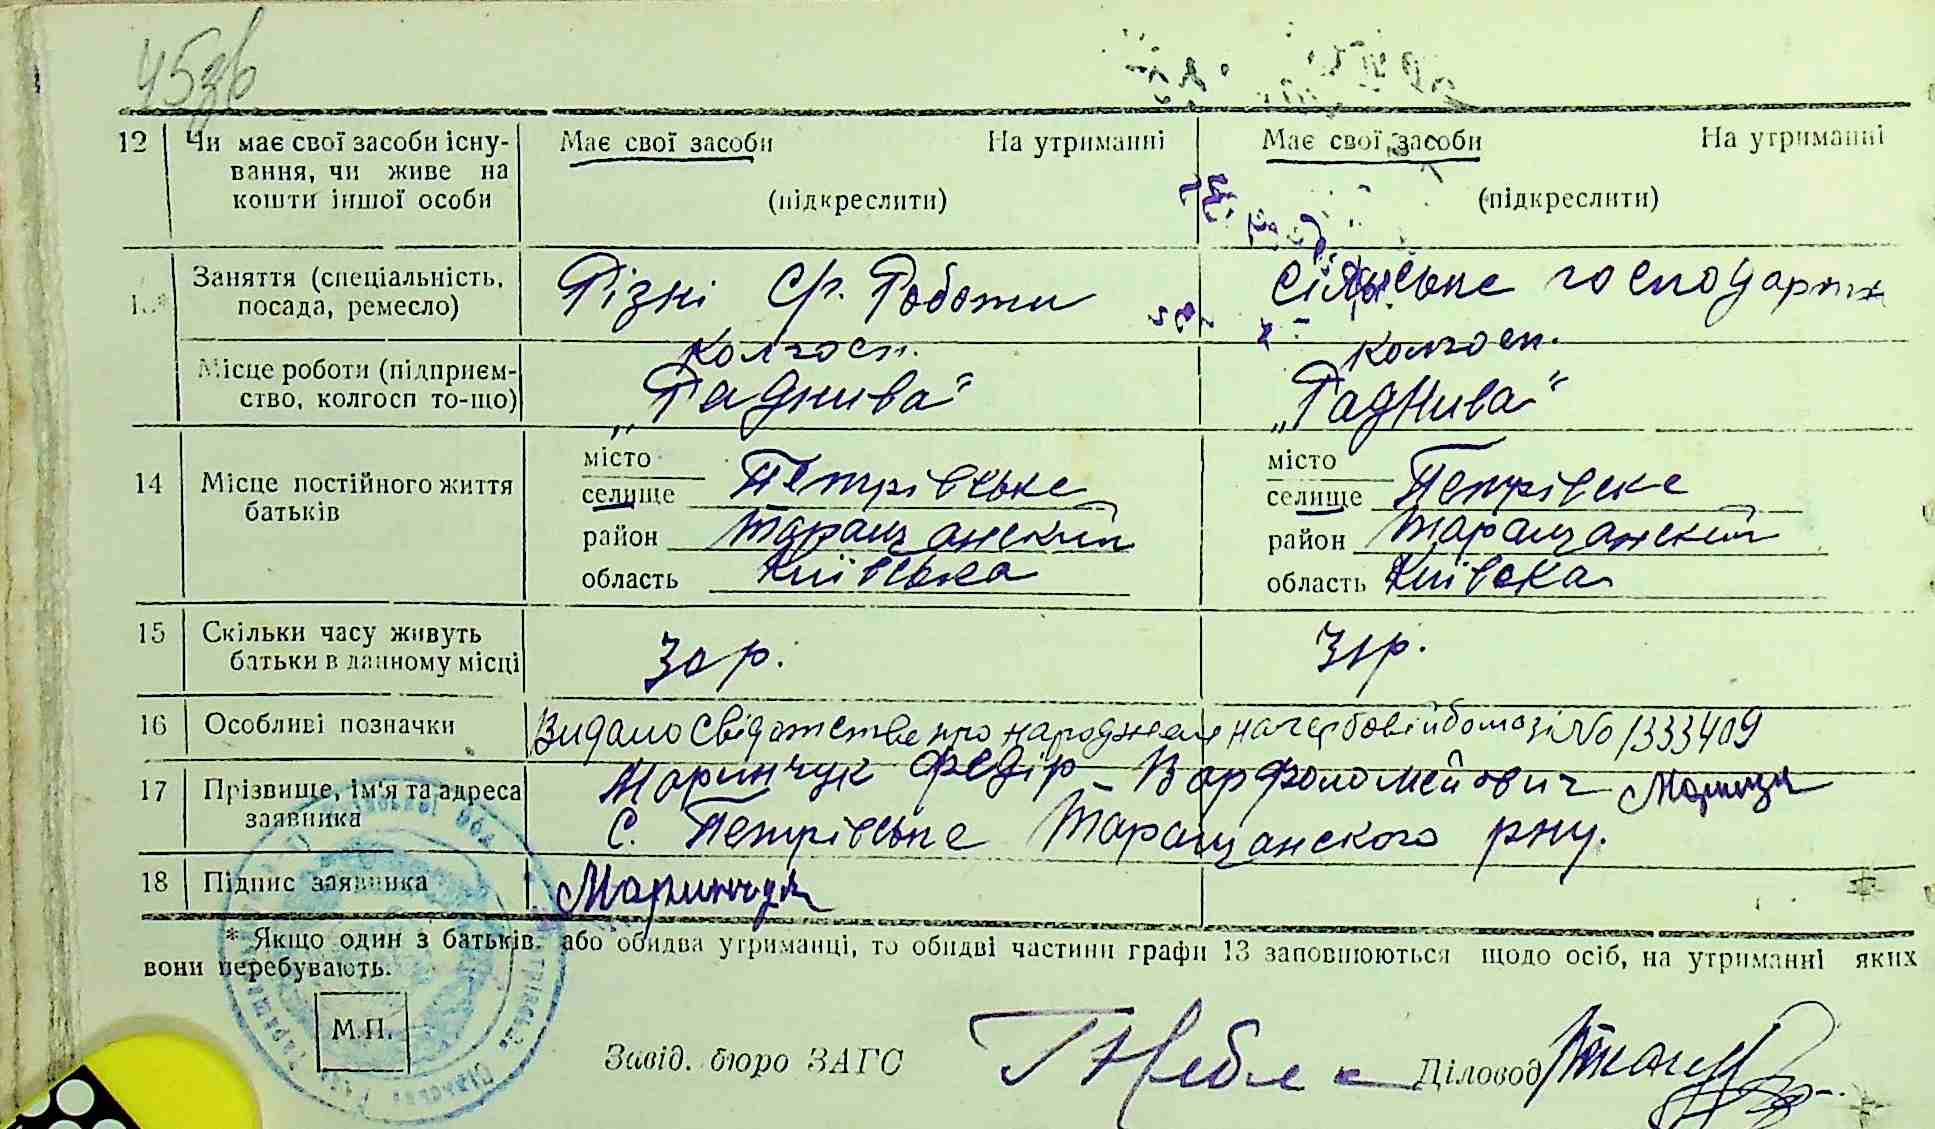 45зв
12 Чи має свої засоби існу- Має свої засоби На утриманні Має свої засоби На утриманні
вання, чи живе на
кошти іншої особи (підкреслити) (підкреслити)
Заняття (спеціальність, Різні ср. Роботи Сільське господарство
посада, ремесло)
Місце роботи (підприєм- Колгосп. Колгосп.
ство, колгосп то-що) „Раднива" „Раднива"
14 Місце постійного життя місто місто
батьків селище Петрівське селище Петрівске
район Таращанский район Таращанский
область Київська область Київска
15 Скільки часу живуть
батьки в данному місці
16 Особливі позначки Видано Свідотство про народження на гербовій бомазі No 1333409
17 Прізвище, ім'я та адреса Маринчук Федір Варфоломейович
заявника С. Петрівське Таращанского рну.
18 Підпис заявника Маринчук
* Якщо один з батьків, або обидва утриманці, то обидві частини графи 13 заповнюються щодо осіб, на утриманні яких
вони перебувають.
М.П.
Завід. бюро ЗАГС Діловод